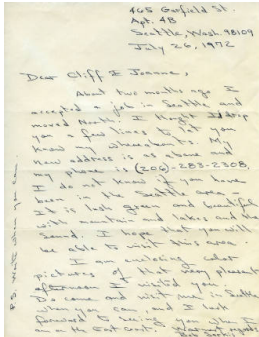 465 Garfield St.
Apt. 4B
Seattle, Wash. 98109
July 26, 1972
Dear Cliff & Joanne,
About two months ago I
accepted a job in Seattle and
moved North. I thought I'd drop
you a few lines to let you
know my whereabouts. My
new address is as above and
my phone is (206)-283-2308.
I do not know if you have
been in the Seattle area -
It is lush green and beautiful
with mountain and lakes and the
Sound. I hope that you will
be able to visit this area.
I am enclosing color
pictures of that very pleasant
afternoon I visited you.
Do come and visit me in Seattle
when you can, and I look
forward to seeing you when I
am on the East Coast. Warmest regards,
Bob
P.S. Write when you can.